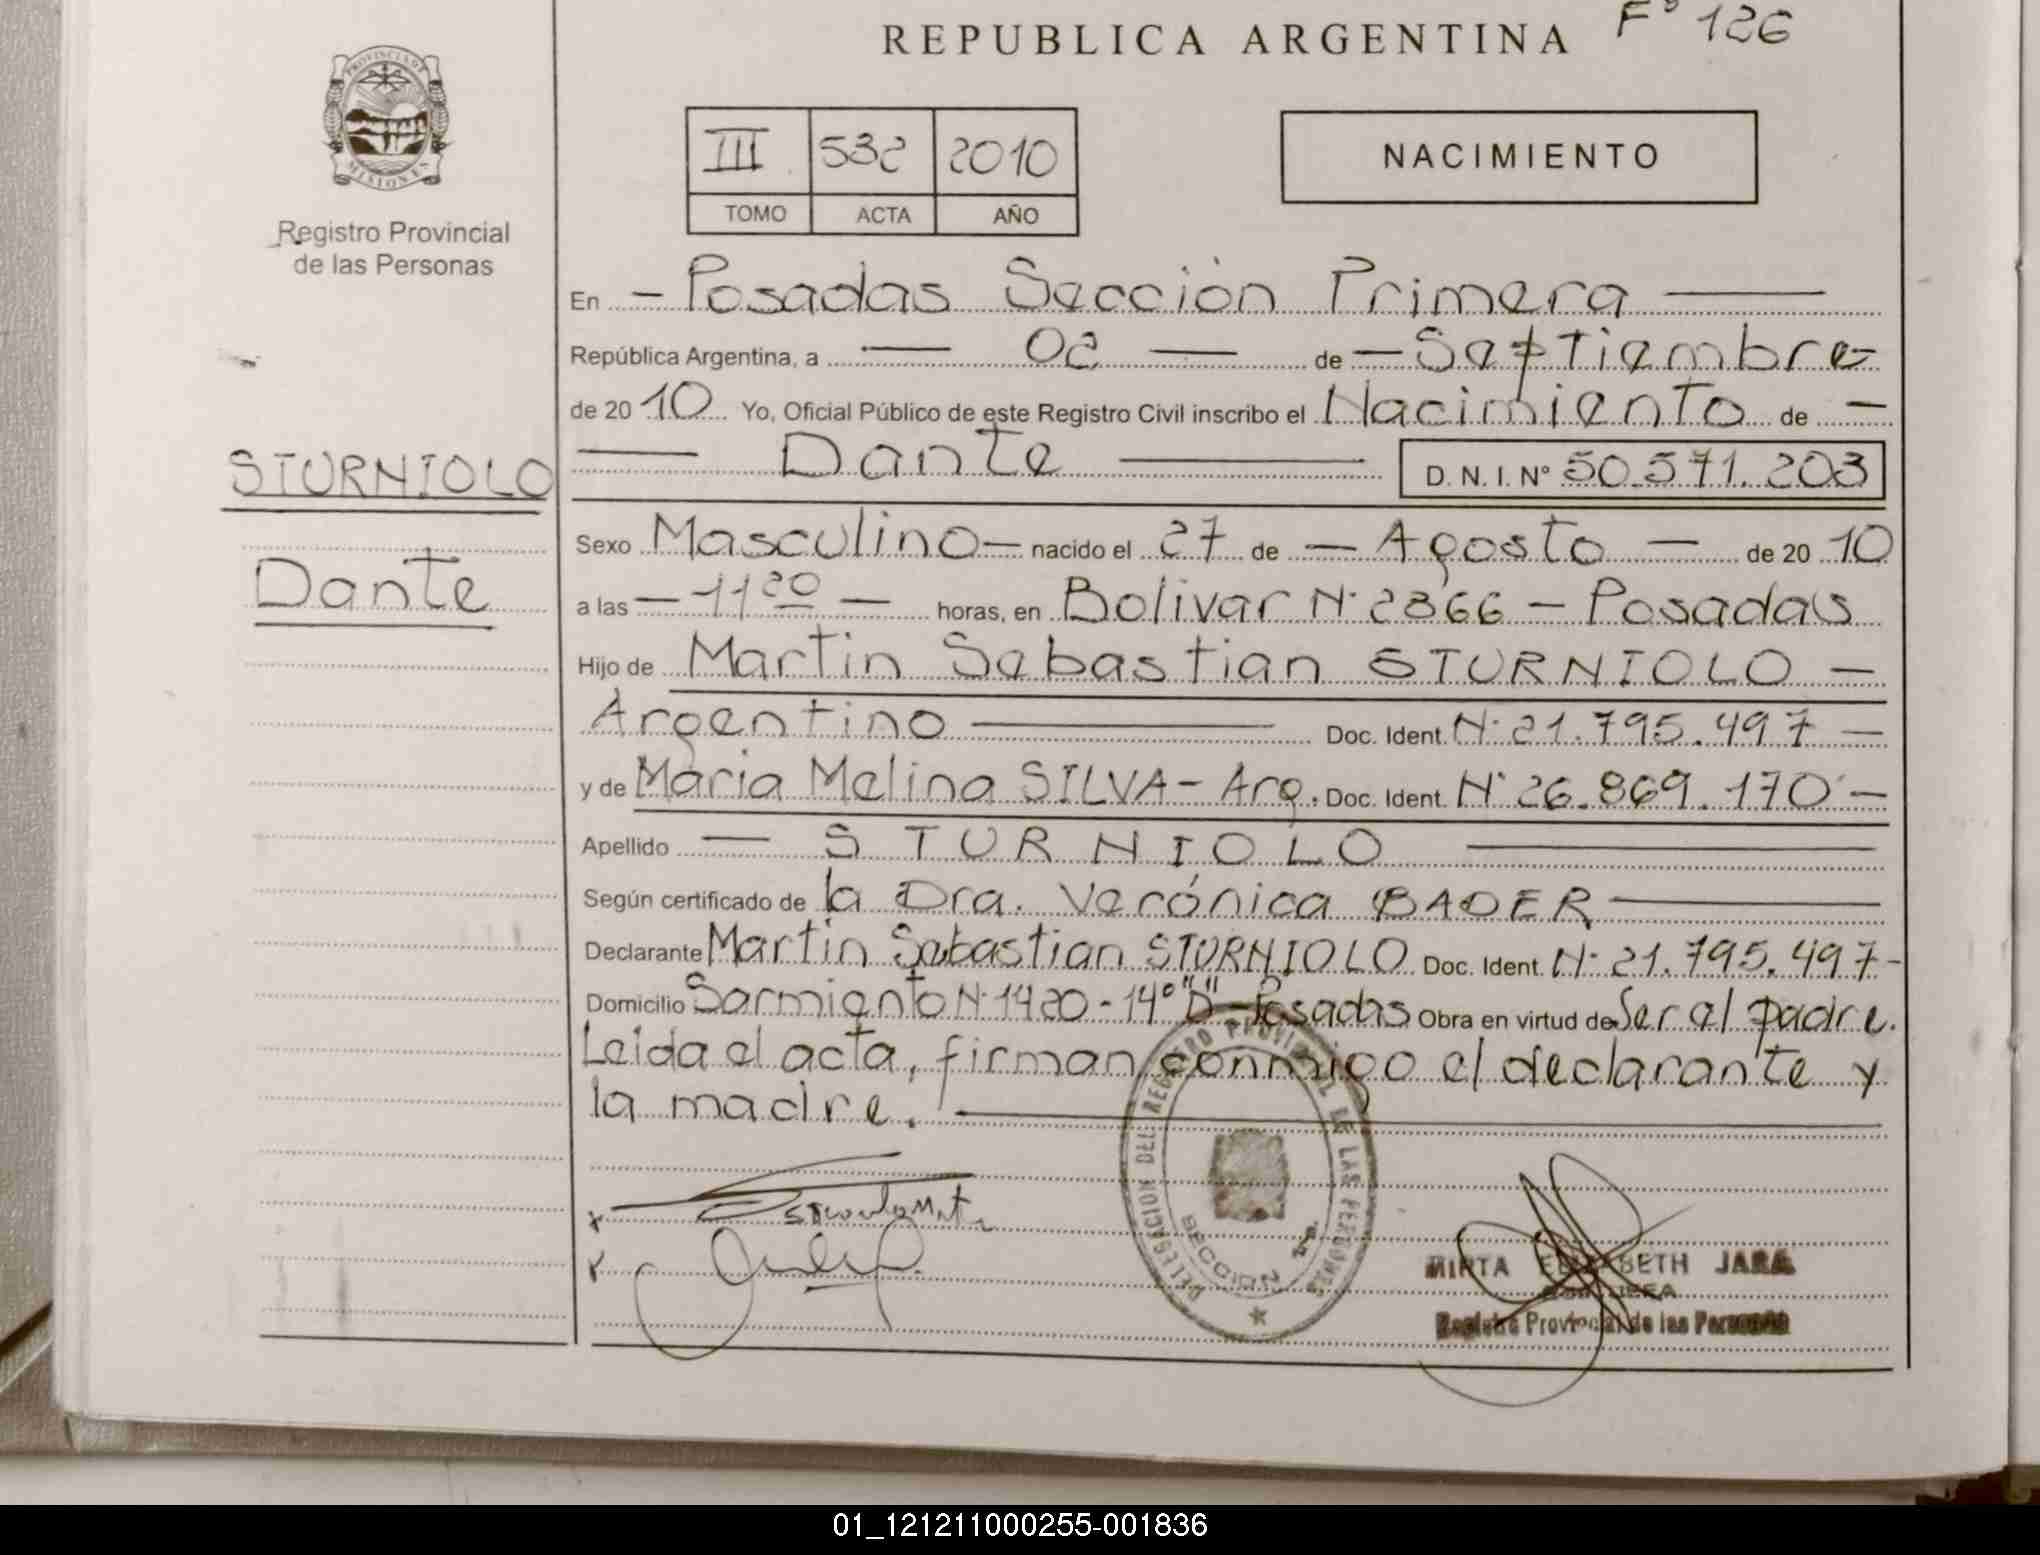 REPUBLICA ARGENTINA Fº 126
PROVINCIA DE
MISIONES
Registro Provincial
de las Personas
III 532 2010
TOMO ACTA AÑO
NACIMIENTO
En - Posadas Sección Primera
República Argentina, a 02 de - Septiembre-
de 20 10 Yo, Oficial Público de este Registro Civil inscribo el Nacimiento de -
Dante D. N. I. Nº 50.571.203
STURNIOLO
Dante
Sexo Masculino - nacido el 27 de - Agosto - de 20 10
a las - 11 20 - horas, en Bolivar Nº 2366 - Posadas
Hijo de Martin Sebastian STURNIOLO -
Argentino Doc. Ident. Nº 21.795.497 -
y de Maria Melina SILVA - Arg. Doc. Ident. Nº 26.869.170 -
Apellido - STURNIOLO
Según certificado de la Dra. Verónica BADER
Declarante Martin Sebastian STURNIOLO Doc. Ident. Nº 21.795.497-
Domicilio Sarmiento Nº 1420 - 14º "D" - Posadas Obra en virtud de Ser al padre.
Leida el acta, firman conmigo el declarante y
la madre.
DELEGACION DEL REGISTRO PROVINCIAL DE LAS PERSONAS
SECCION 1ra.
MIRTA ELIZABETH JARA
Registro Provincial de las Personas
01_121211000255-001836